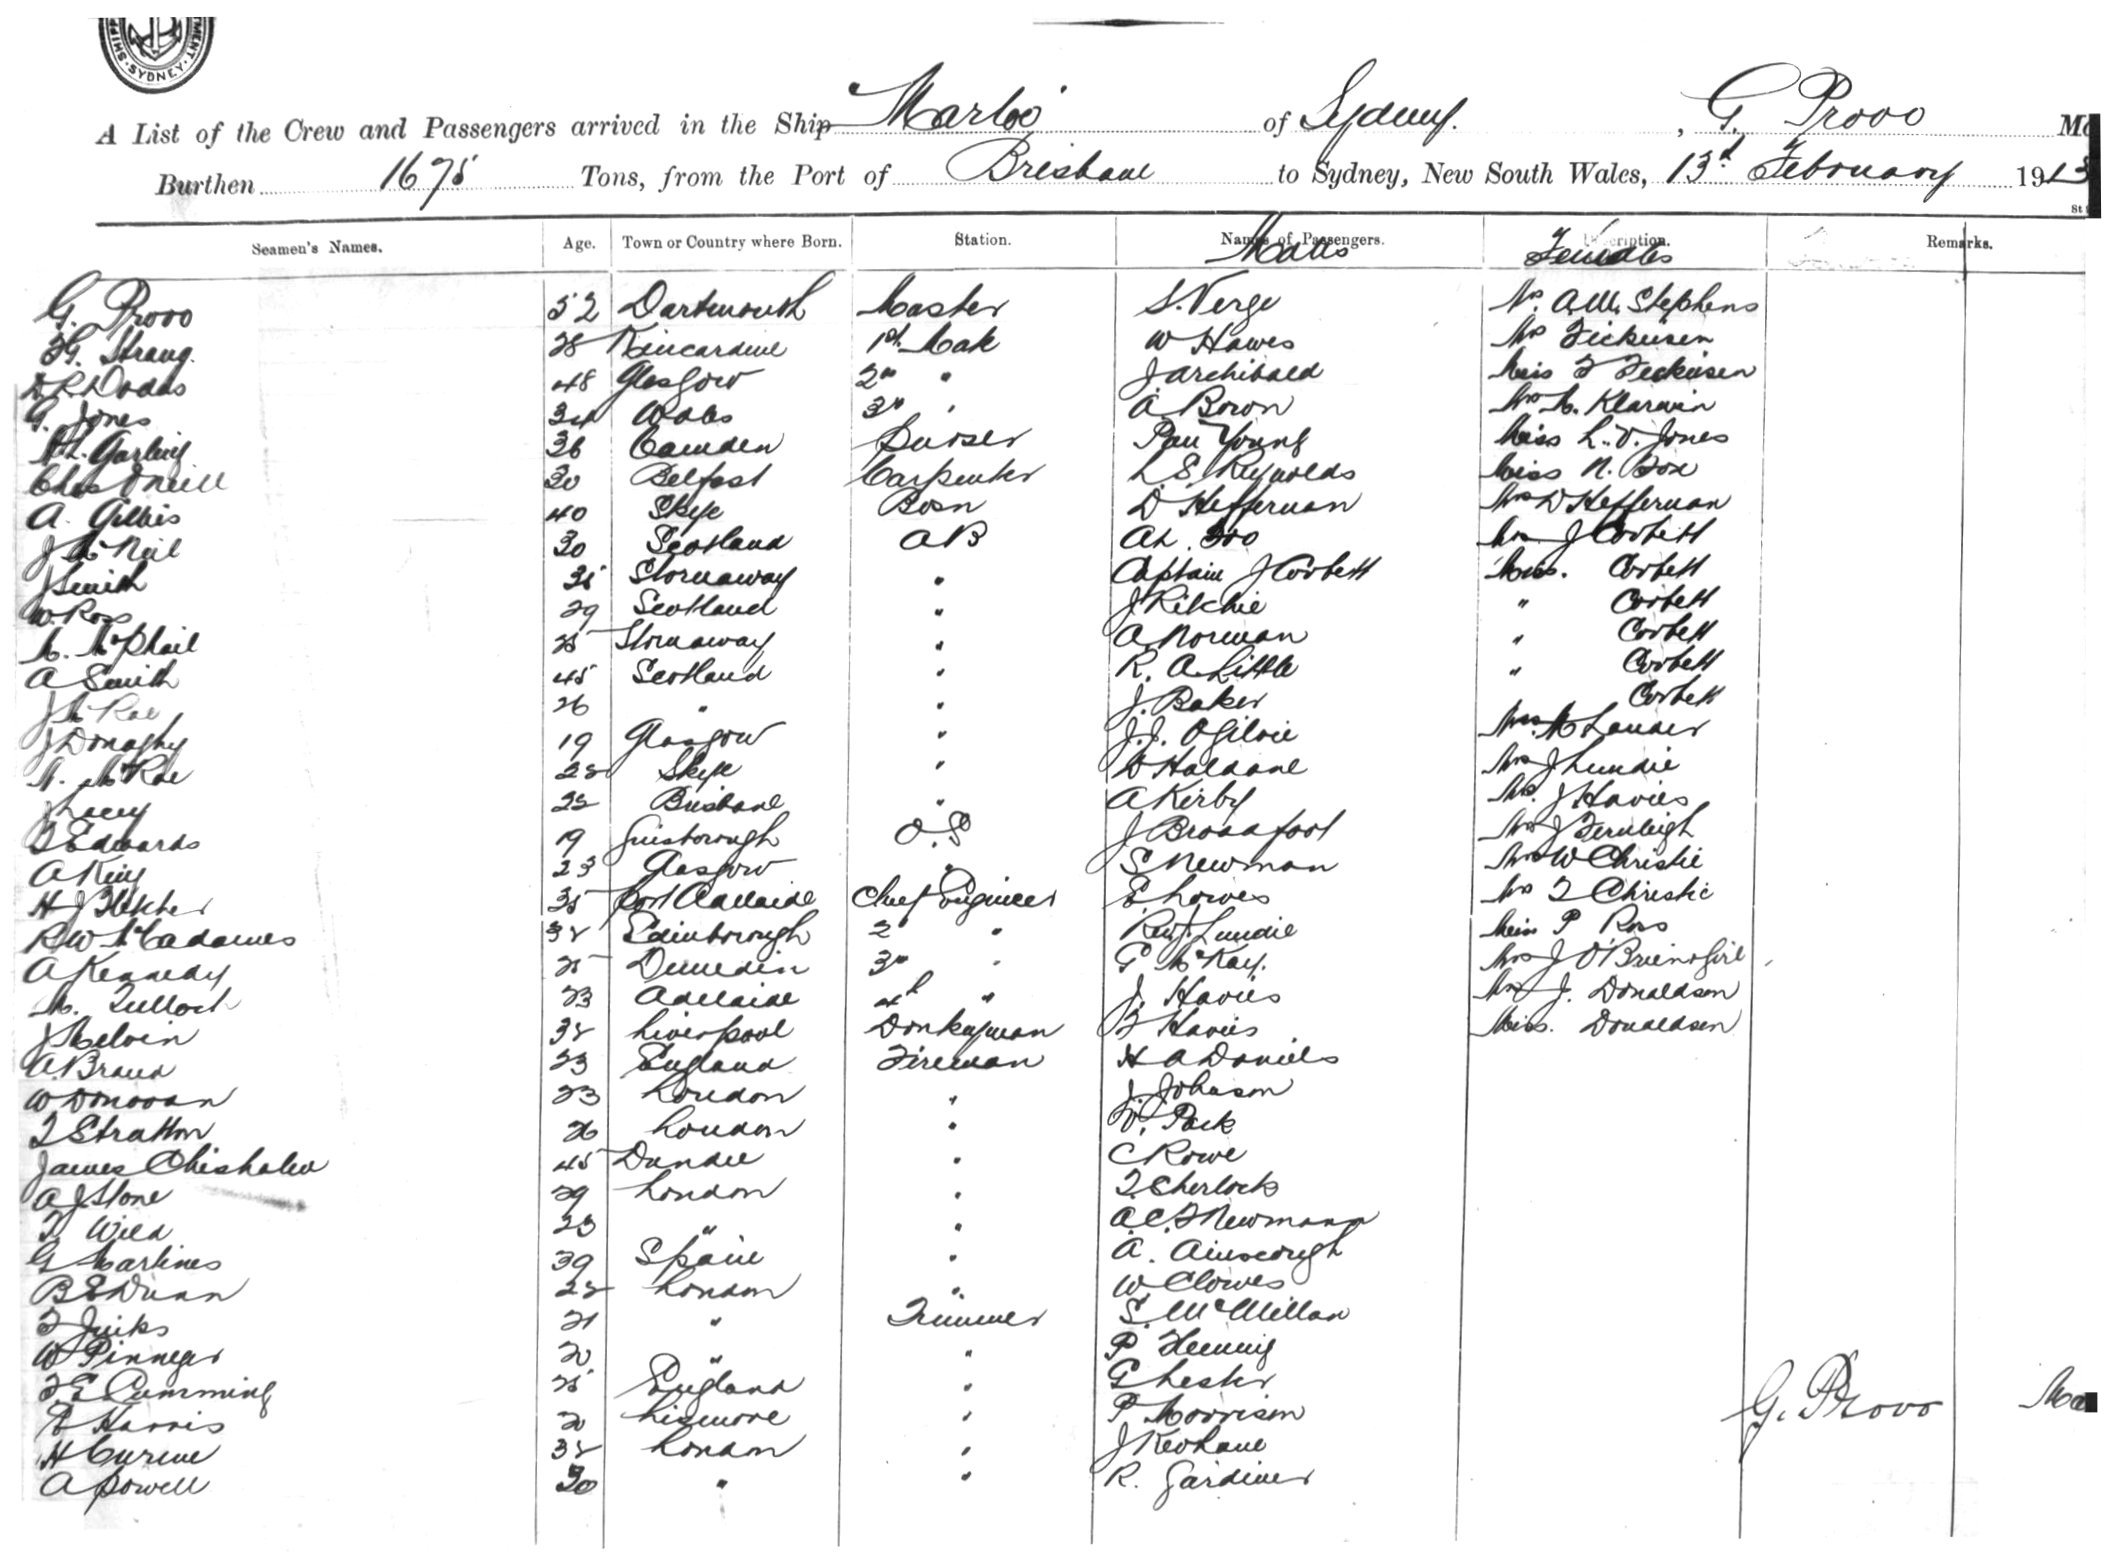 SYDNEY
A List of the Crew and Passengers arrived in the Ship Marloo of Sydney. , G. Provo
Burthen 1675 Tons, from the Port of Brisbane to Sydney, New South Wales, 13th February 1913
Seamen's Names. Age. Town or Country where Born. Station. Names of Passengers. Description. Remarks.
Males Females
G. Provo 52 Dartmouth Master S. Verge Mrs A.W. Stephens
Strang. 28 Kincardine 1st Mate W Hawes Mrs
D.R. Dodds 48 Glasgow 2nd " J Archibald Miss
G. Jones 34 Wales 3rd " A. Bown Mrs
36 Camden Purser Pau Young Miss L. V. Jones
Chas O'Neill 30 Belfast Carpenter L. S. Reynolds Miss N. Box
A. Gillies 40 Skye Bosn D Heffernan Mrs D Heffernan
J McNeil 30 Scotland AB Ah. Foo Mrs J Corbett
J Smith 35 Stornaway " Captain J Corbett Miss. Corbett
W. Ross 29 Scotland " J Ritchie " Corbett
M. McPhail 25 Stornaway " A Norman " Corbett
A Smith 45 Scotland " R. A. Little " Corbett
J McRae 26 " " J. Baker Corbett
J Donaghy 19 Glasgow " J.J. Ogilvie Mrs.
McRae 22 Skye " Haldane Mrs J Lundie
J Lacey 22 Brisbane " A Kirby Mrs. J Havies
Edwards 19 Guisborough O.S J Broadfoot Mrs J Fernleigh
A King 23 Glasgow " S Newman Mrs W Christie
H J Fletcher 35 Port Adelaide Chief Engineer E. Lowes Mrs Christie
R W McAdames 32 Edinborough 2 " Rev J. Lundie Miss P Ross
A Kennedy 25 Dunedin 3rd " G McKay. Mrs J O'Brien & Girl
M. Tulloch 23 Adelaide 4th " J. Havies Mrs J. Donaldson
J Melvin 32 Liverpool Donkeyman Havies Miss. Donaldson
A. Brand 23 England Fireman H A Daniels
W Donovan 23 London " J. Johnson
Stratton 26 London " Pack
James Chisholm 45 Dundee " C Rowe
A J Stone 29 London " Cherlock
Wild 23 " " A. C. F Newmann
G Martines 39 Spain " A. Ainscough
B E Dunn 22 London " W Clowes
Jinks 21 " Trimmer S. McMillan
W Pinneger 20 " " P Fleming
F E Cumming 25 England " G Lester
Harris 20 Lismore " P Morrison
H Curme 32 London " J Keohane
A Powell 30 " " R. Gardiner
G. Provo